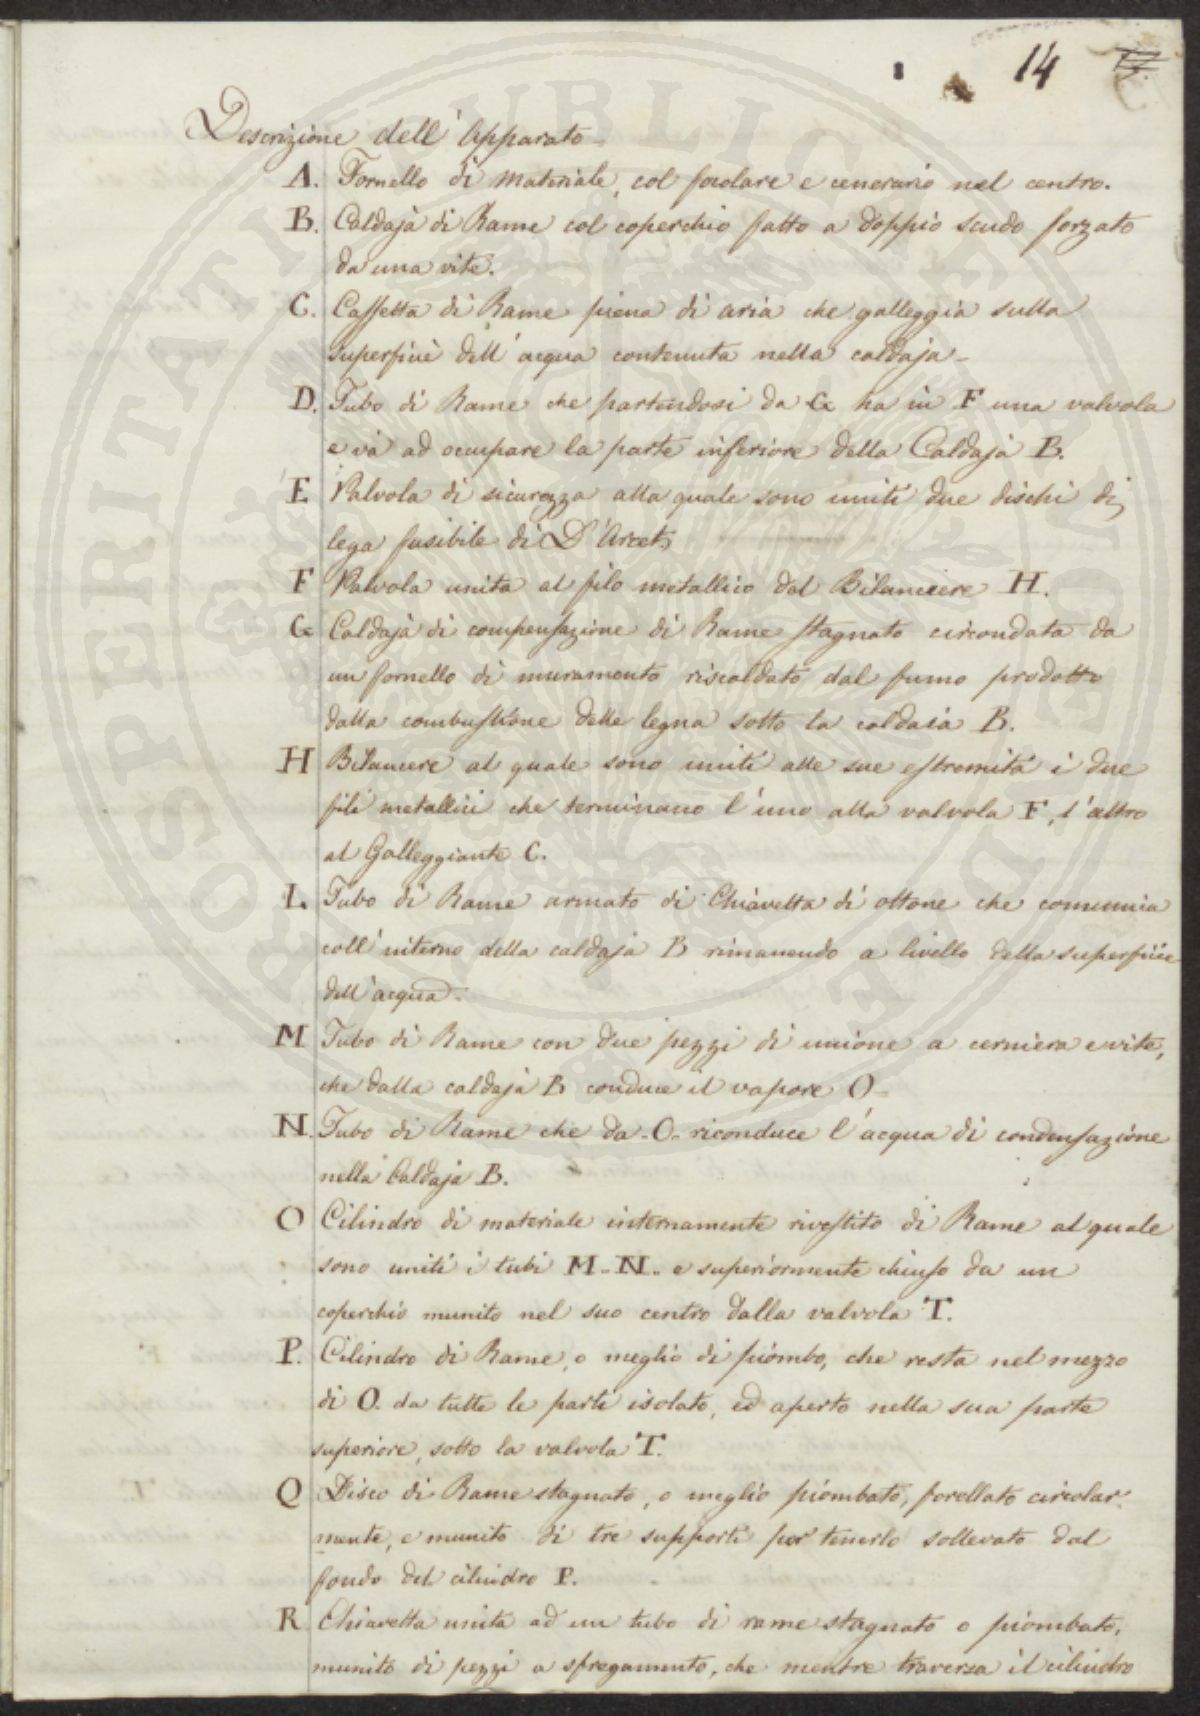 14
Descrizione dell'Apparato
A. Fornello di Materiale, col focolare e cenerario nel centro.
B. Caldaja di Rame col coperchio fatto a doppio scudo forzato
da una vite.
C. Cassetta di Rame piena di aria che galleggia sulla
superficie dell'acqua contenuta nella caldaja
D. Tubo di Rame che partendosi da G ha in F una valvola
e và ad occupare la parte inferiore della Caldaja B.
E Valvola di sicurezza alla quale sono uniti due dischi di
lega fusibile di D'Arcet
F Valvola unita al filo metallico del Bilanciere H.
G Caldaja di compensazione di Rame stagnato circondata da
un fornello di muramento riscaldato dal fumo prodotto
dalla combustione delle legna sotto la caldaia B.
H Bilancere al quale sono uniti alle sue estremità i due
fili metallici che terminano l'uno alla valvola F, l'altro
al Galleggiante C.
L Tubo di Rame armato di Chiavetta di ottone che comunica
coll'interno della caldaja B rimanendo a livello della superficie
dell'acqua.
M Tubo di Rame con due pezzi di unione a cerniera e vite,
che dalla caldaja B conduce il vapore O
N. Tubo di Rame che da O riconduce l'acqua di condensazione
nella Caldaja B.
O Cilindro di materiale internamente rivestito di Rame al quale
sono uniti i tubi M. N. e superiormente chiuso da un
coperchio munito nel suo centro dalla valvola T.
P. Cilindro di Rame, o meglio di piombo, che resta nel mezzo
di O. da tutte le parti isolato, ed aperto nella sua parte
superiore, sotto la valvola T.
Q Disco di Rame stagnato, o meglio piombato, forellato circolar-
mente, e munito di tre supporti per tenerlo sollevato dal
fondo del cilindro P.
R Chiavetta unita ad un tubo di rame stagnato o piombato,
munito di pezzi a sfregamento, che mentre traversa il cilindro
PROSPERITATI PUBLICAE AUGENDAE